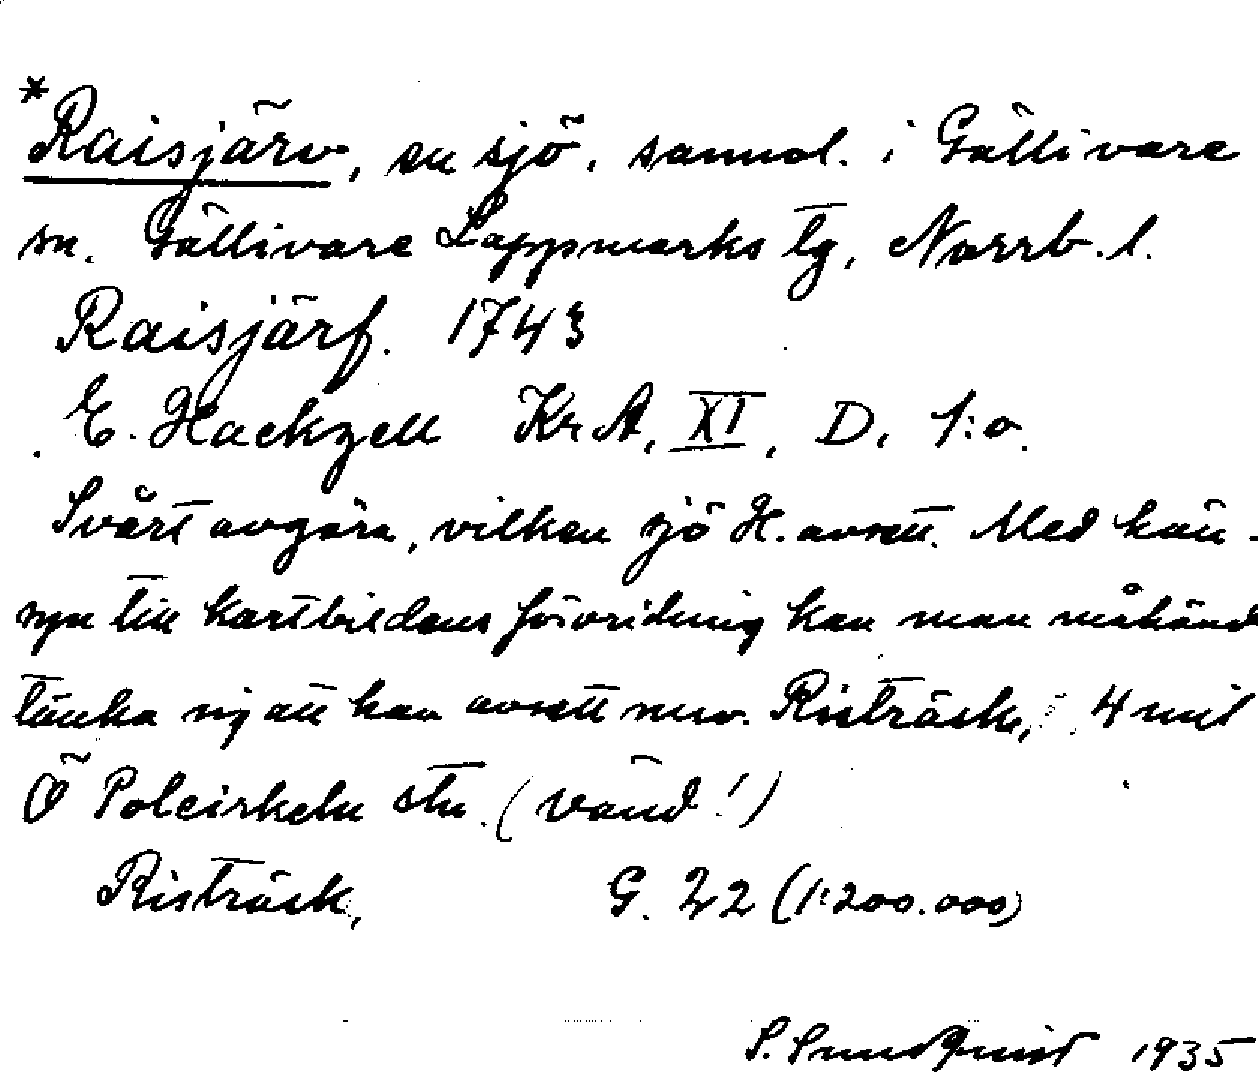 *Raisjärv, en sjö, sannol. i Gällivare
sn. Gällivare Lappmarks tg, Norrb. l.
Raisjärf. 1743
E. Hackzell Kr A, XI, D, 1:a.
Svårt avgöra, vilken sjö H. avsett. Med hän-
syn till kartbildens förvridning kan man måhänd
tänka sig att han avsett nuv. Risträsk, 4 mil
Ö Polcirkeln stn. (vänd!)
Risträsk, G. 22 (1:200.000)
S. Sundquist 1935